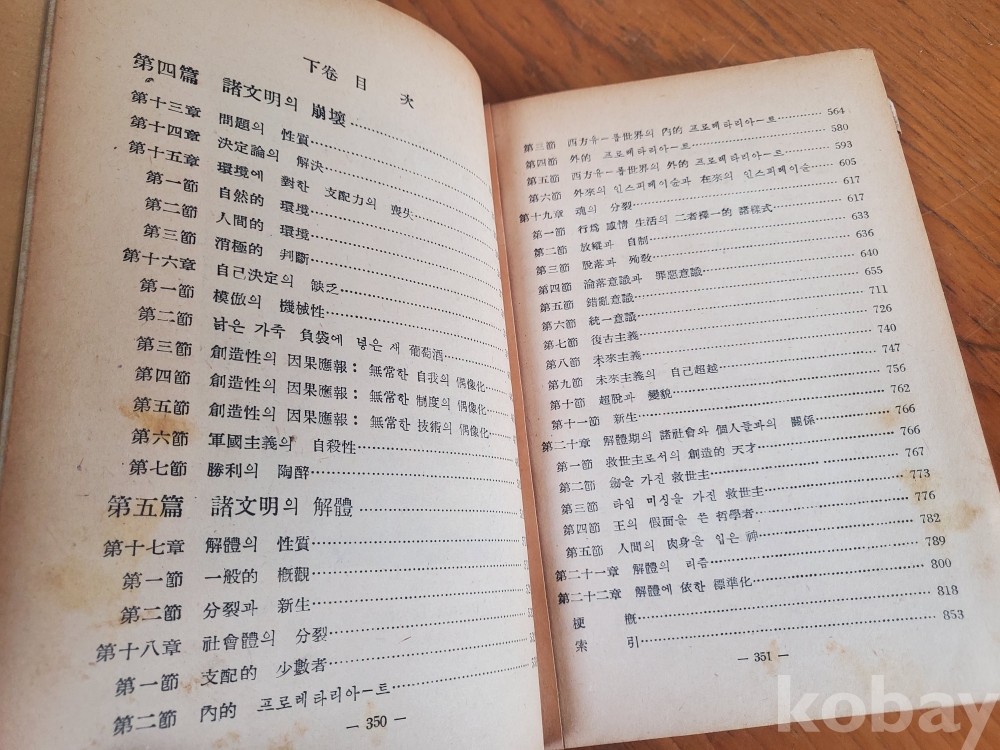 下卷 目 次
第四篇 諸文明의 崩壞
第十三章 問題의 性質
第十四章 決定論의 解決
第十五章 環境에 對한 支配力의 喪失
第一節 自然的 環境
第二節 人間的 環境
第三節 消極的 判斷
第十六章 自己決定의 缺乏
第一節 模倣의 機械性
第二節 낡은 가죽 負袋에 넣은 새 葡萄酒
第三節 創造性의 因果應報: 無常한 自我의 偶像化
第四節 創造性의 因果應報: 無常한 制度의 偶像化
第五節 創造性의 因果應報: 無常한 技術의 偶像化
第六節 軍國主義의 自殺性
第七節 勝利의 陶醉
第五篇 諸文明의 解體
第十七章 解體의 性質
第一節 一般的 槪觀
第二節 分裂과 新生
第十八章 社會體의 分裂
第一節 支配的 少數者
第二節 內的 프로레타리아—트
— 350 —
第三節 西方유—롭世界의 內的 프로레타리아—트 564
第四節 外的 프로레타리아—트 580
第五節 西方유—롭世界의 外的 프로레타리아—트 593
第六節 外來의 인스피레이슌과 在來의 인스피레이슌 605
第十九章 魂의 分裂 617
第一節 行爲 感情 生活의 二者擇一的 諸樣式 617
第二節 放縱과 自制 633
第三節 脫落과 殉敎 636
第四節 淪落意識과 罪惡意識 640
第五節 錯亂意識 655
第六節 統一意識 711
第七節 復古主義 726
第八節 未來主義 740
第九節 未來主義의 自己超越 747
第十節 超脫과 變貌 756
第十一節 新生 762
第二十章 解體期의 諸社會와 個人들과의 關係 766
第一節 救世主로서의 創造的 天才 766
第二節 劒을 가진 救世主 767
第三節 타임 미싱을 가진 救世主 773
第四節 王의 假面을 쓴 哲學者 776
第五節 人間의 肉身을 입은 神 782
第二十一章 解體의 리즘 789
第二十二章 解體에 依한 標準化 800
梗 槪 818
索 引 853
— 351 —
kobay